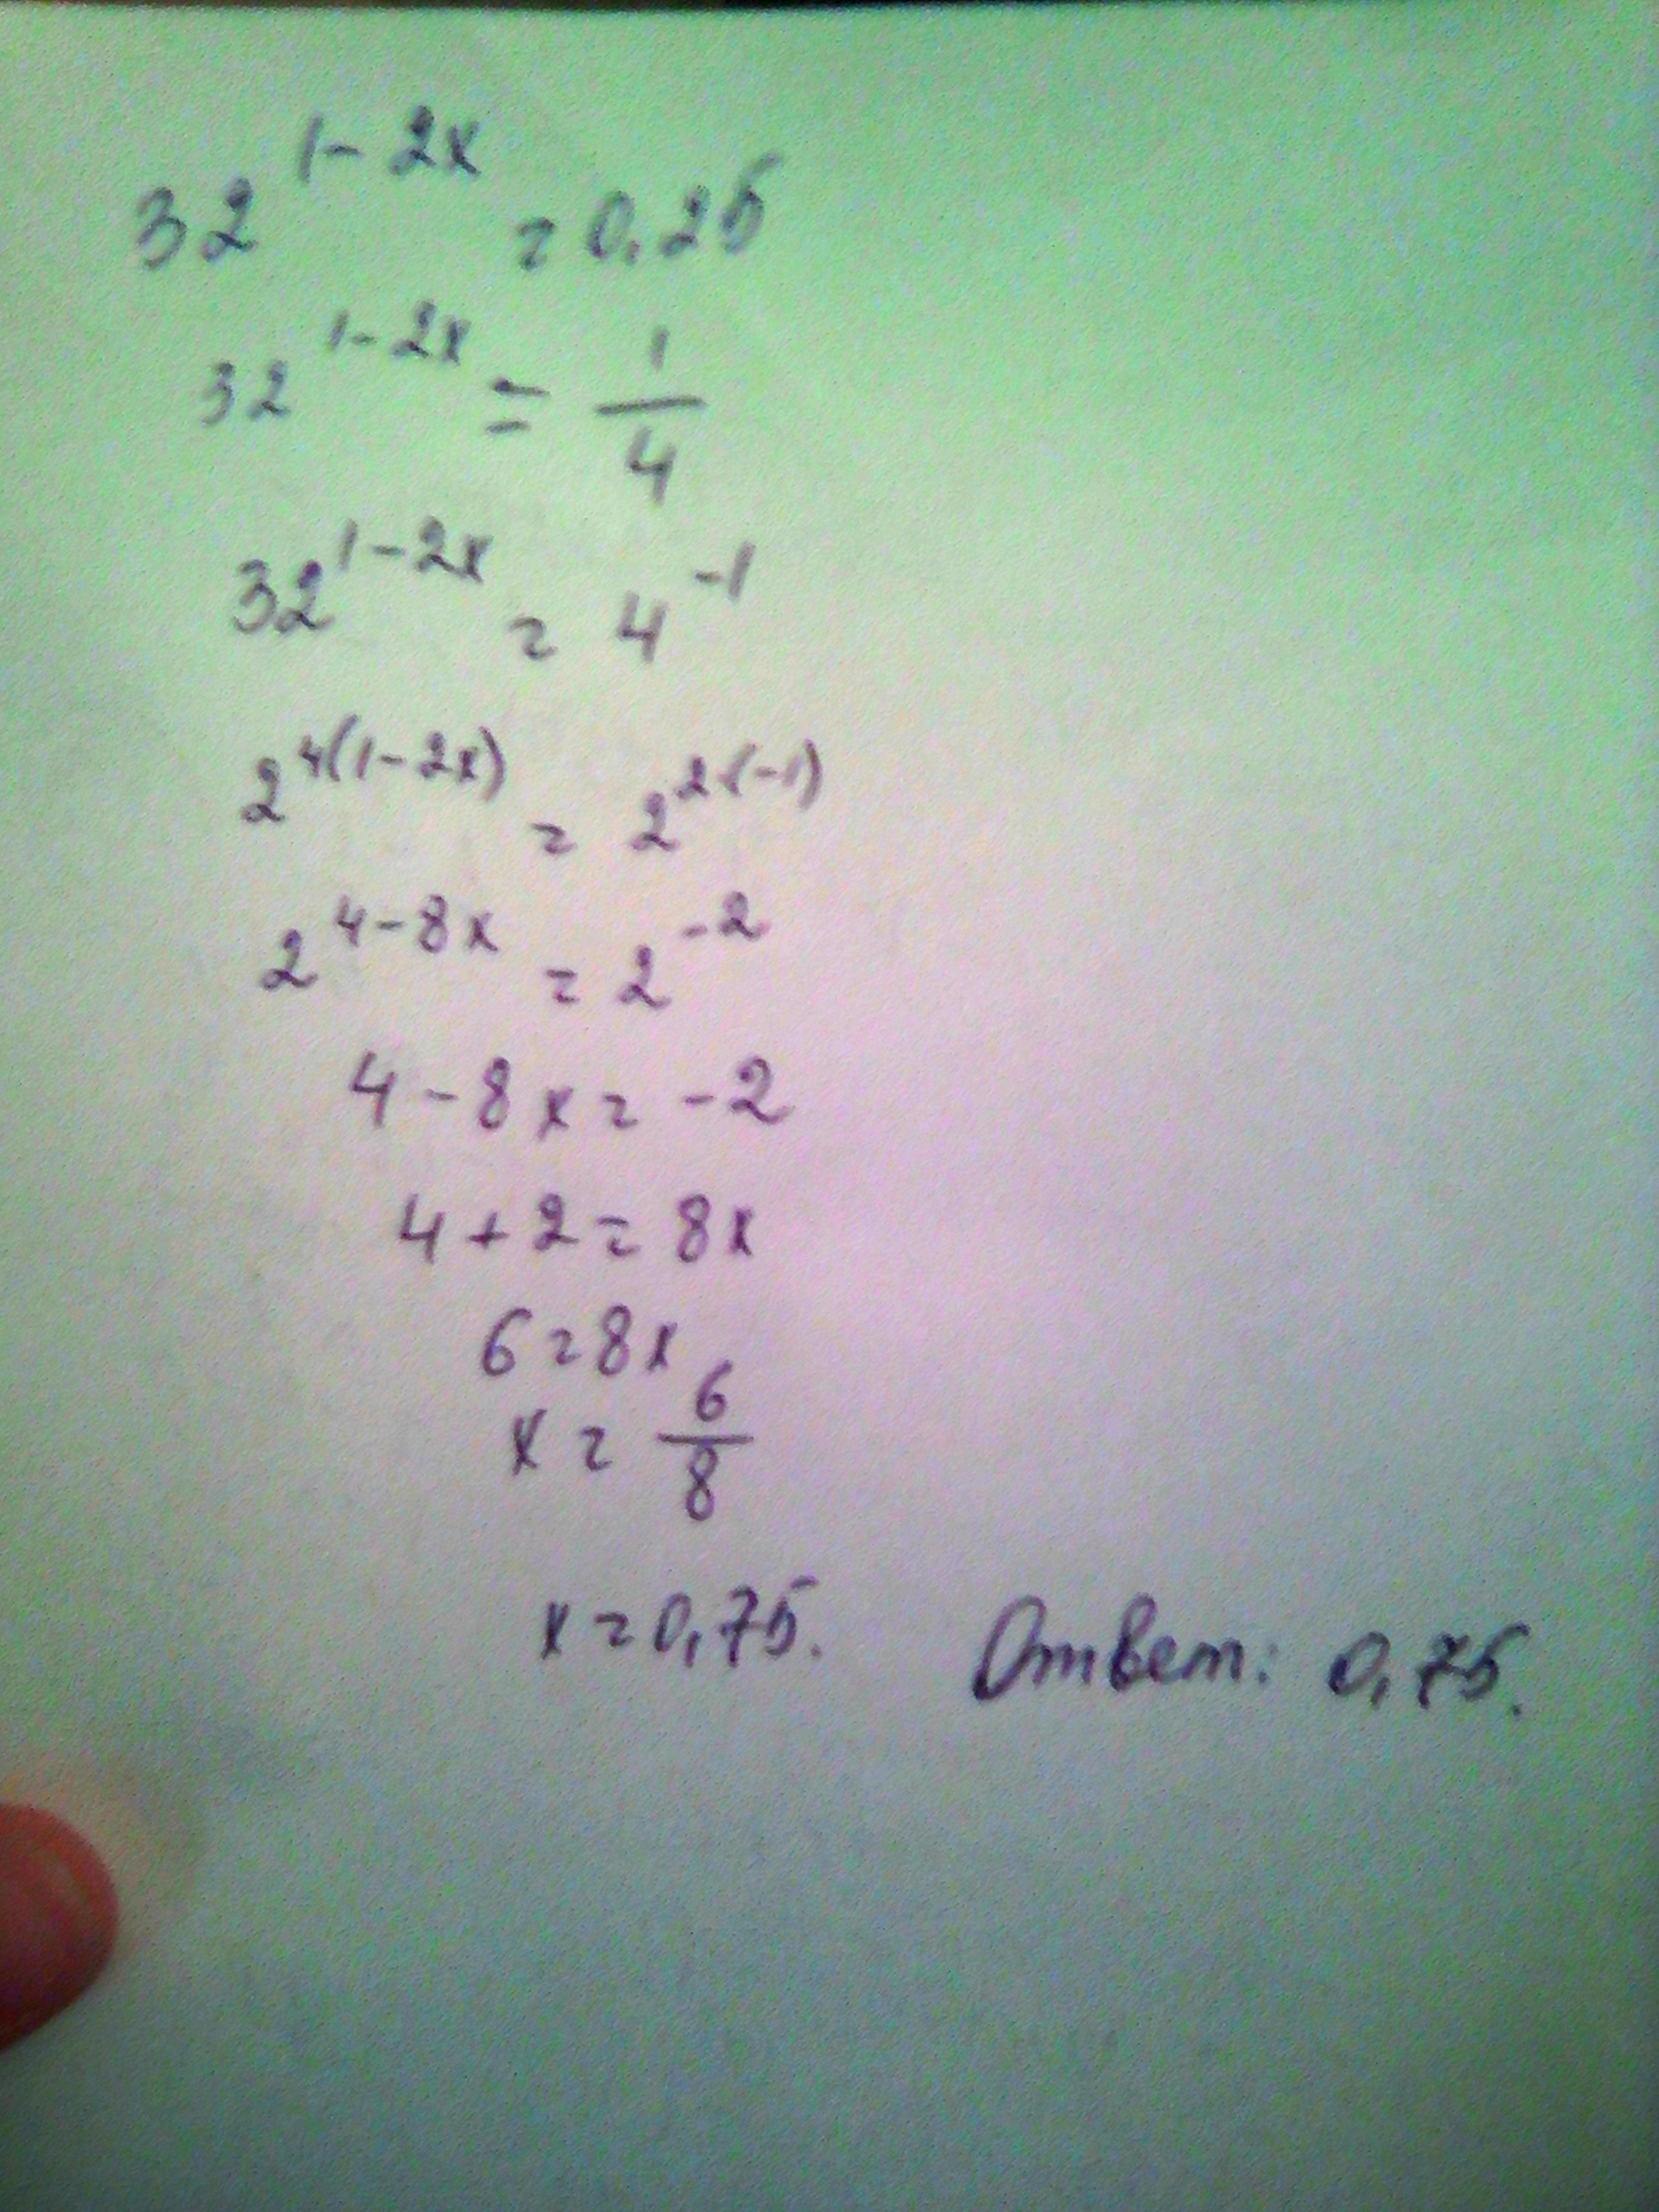 32^{1-2x} = 0,25
32^{1-2x} = \frac{1}{4}
32^{1-2x} = 4^{-1}
2^{4(1-2x)} = 2^{2·(-1)}
2^{4-8x} = 2^{-2}
4-8x = -2
4+2 = 8x
6=8x
x = \frac{6}{8}
x = 0,75. Ответ: 0,75.